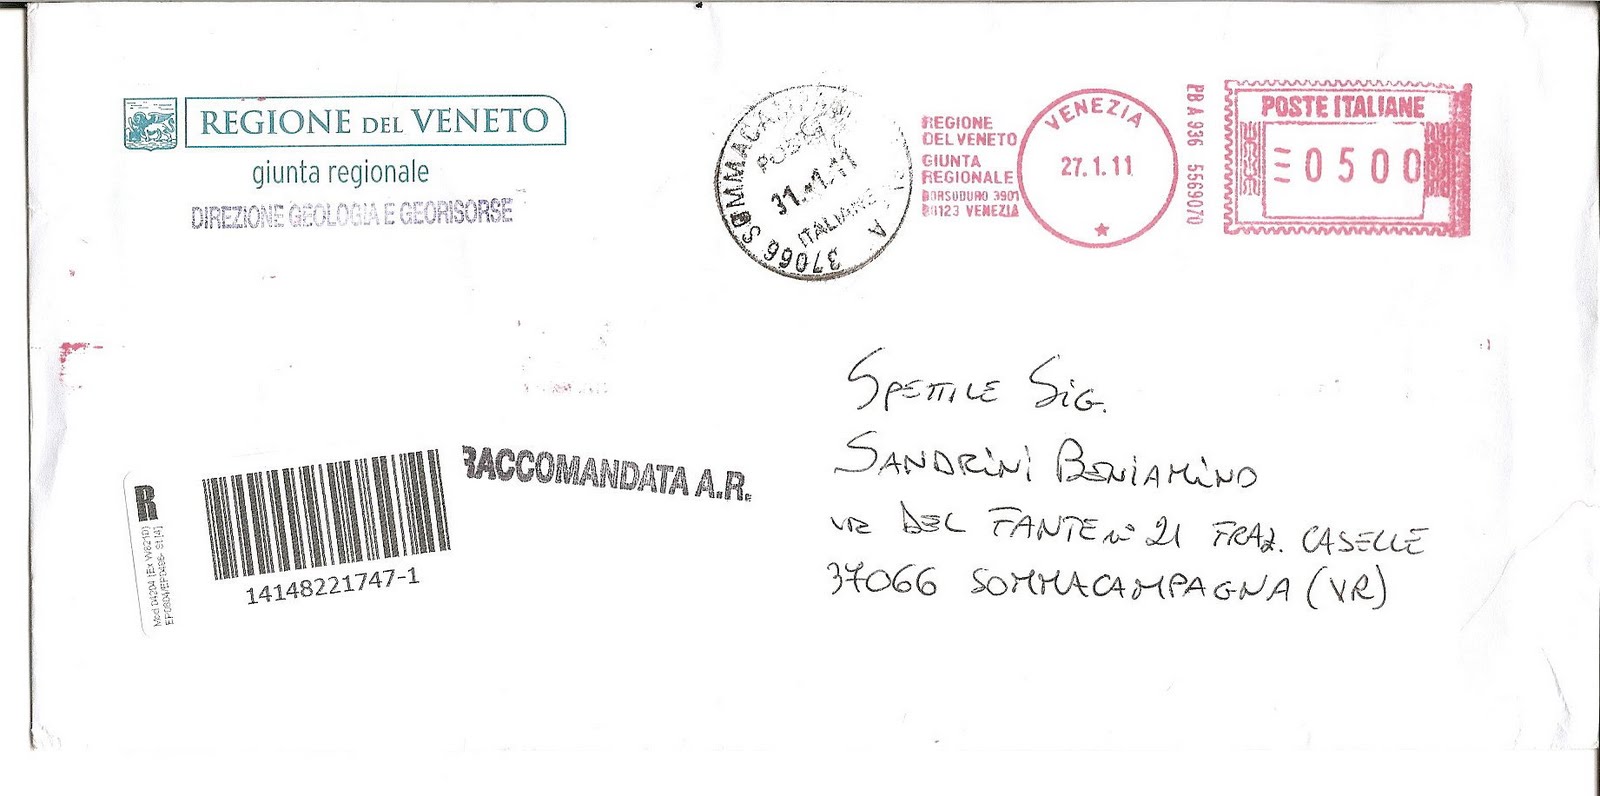 REGIONE DEL VENETO
giunta regionale
DIREZIONE GEOLOGIA E GEORISORSE
37066 SOMMACAM
POSTE
31. 1.11
ITALIANE
REGIONE
DEL VENETO
GIUNTA
REGIONALE
DORSODURO 3901
30123 VENEZIA
VENEZIA
27.1.11
PB A 936 5569070
POSTE ITALIANE
0500
SPETTILE SIG.
SANDRINI BENIAMINO
VIA DEL FANTE n° 21 FRAZ. CASELLE
37066 SOMMACAMPAGNA (VR)
RACCOMANDATA A.R.
R
14148221747-1